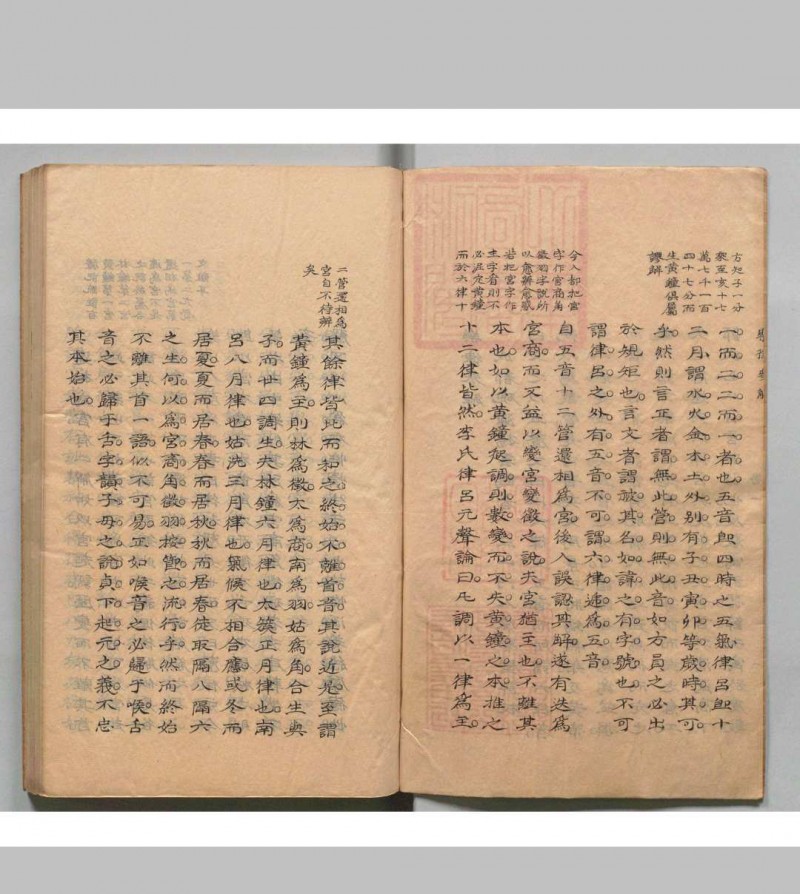 一而二二而一者也五音卽四時之五氣律呂卽十
二月謂水火金木土外別有子丑寅卯等歲時其可
乎然則言正者謂無此管則無此音如方員之必出
於規矩也言文者謂被其名如諱之有字號也不可
謂律呂之外有五音不可謂六律遞為五音
自五音十二管還相為宮後人誤認其解遂有迭為
宮商而又益以變宮變徵之說夫宮猶主也不離其
本也如以黃鐘起調則數變而不失黃鐘之本推之
十二律皆然李氏律呂元聲論曰凡調以一律為主
方矩子一分
乘至亥十七
萬七千一百
四十七分而
生黃鐘俱屬
謬解
今人都把宮
字作宮商角
徵羽字說所
以愈辨愈惑
若把宮字作
主字看則不
必泥定黃鐘
而於六律十
二管還相為
宮自不待辨
矣
其餘律皆比而和之終始不離首音其說近是至謂
黃鐘為主則林為徵太為商南為羽姑為角合生與
子而廿四調生夫林鐘六月律也太簇正月律也南
呂八月律也姑洗三月律也氣候不相合應或冬而
居夏夏而居春春而居秋秋而居春徒取隔八隔六
之生何以為宮商角徵羽按管之流行乎然而終始
不離其首一語似不可易正如喉音之必歸于喉舌
音之必歸于舌字譜子母之說貞下起元之義不忘
其本始也